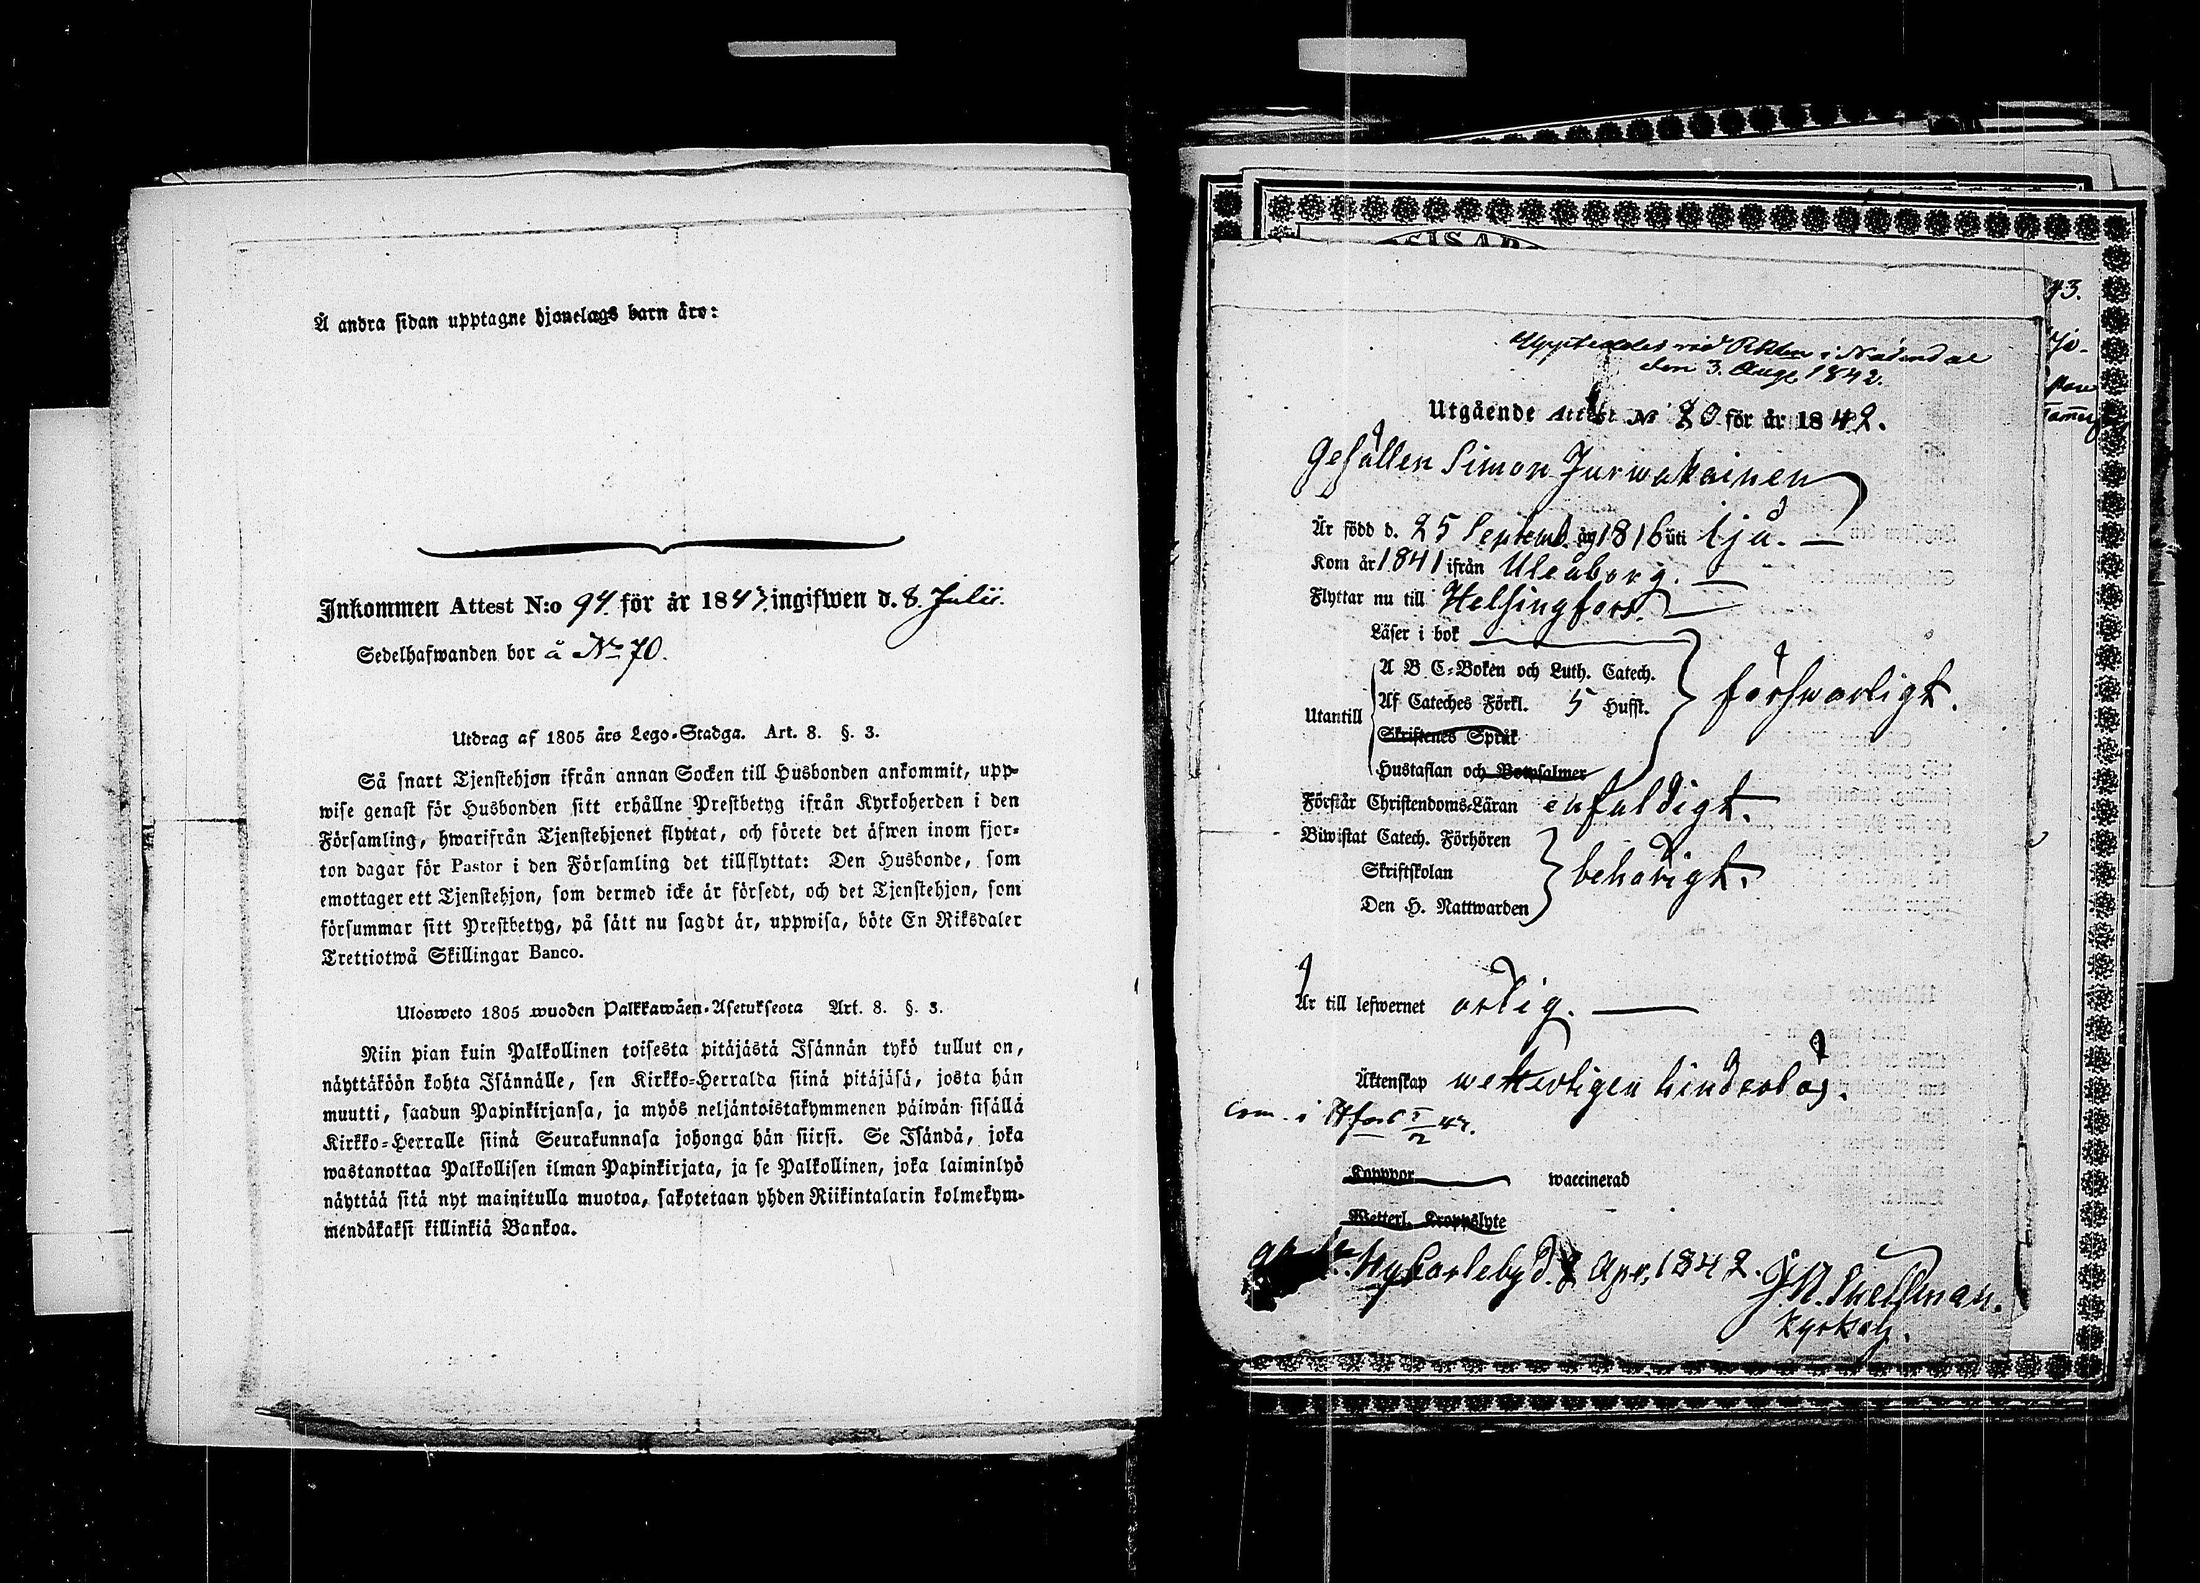 Å andra sidan upptagne hjonelags barn äro:
Inkommen Attest N:o 94. för år 1843. ingifwen d. 8. Julii.
Sedelhafwanden bor å No 70.
Utdrag af 1805 års Lego-Stadga. Art. 8. §. 3.
Så snart Tjenstehjon ifrån annan Socken till Husbonden ankommit, upp-
wise genast för Husbonden sitt erhållne Prestbetyg ifrån Kyrkoherden i den
Församling, hwarifrån Tjenstehjonet flyttat, och förete det äfwen inom fjor-
ton dagar för Pastor i den Församling det tillflyttat: Den Husbonde, som
emottager ett Tjenstehjon, som dermed icke är försedt, och det Tjenstehjon, som
försummar sitt Prestbetyg, på sätt nu sagdt är, uppwisa, böte En Riksdaler
Trettiotwå Skillingar Banco.
Ulosweto 1805 wuoden Palkkawäen-Asetuksesta Art. 8. §. 3.
Niin pian kuin Palkollinen toisesta pitäjästä Isännän tykö tullut on,
näyttäköön kohta Isännälle, sen Kirkko-Herralda siinä pitäjäsä, josta hän
muutti, saadun Papinkirjansa, ja myös neljäntoistakymmenen päiwän sisällä
Kirkko-Herralle siinä Seurakunnasa johonga hän siirsi. Se Isändä, joka
wastanottaa Palkollisen ilman Papinkirjata, ja se Palkollinen, joka laiminlyö
näyttää sitä nyt mainitulla muotoa, sakotetaan yhden Riikintalarin kolmekym-
mendäkaksi killinkiä Bankoa.
43.
70.
Uppteddes vid i Nådendal
den 3. Aug. 1842.
Utgående Attest No 20 för år 1842.
Gesällen Simon Jurwakainen
Är född d. 25 Septemb. år 1816 uti Ijå.
Kom år 1841 ifrån Uleåborg.
Flyttar nu till Helsingfors.
Läser i bok
A B C-Boken och Luth. Catech.
Af Cateches Förkl. 5 Hufst. förswarligt.
Utantill
Skriftenes Språk
Hustaflan och Botpsalmer
Förstår Christendoms-Läran enfaldigt.
Biwistat Catech. Förhören
Skriftskolan behörigt.
Den H. Nattwarden
Är till lefwernet ärlig.
Äktenskap wetterligen hinderslös.
Com. i Hfors
Koppor waccinerad
Wetterl. Kroppslyte
Nykarleby d. 8 Apr. 1842. J. N. Snellman.